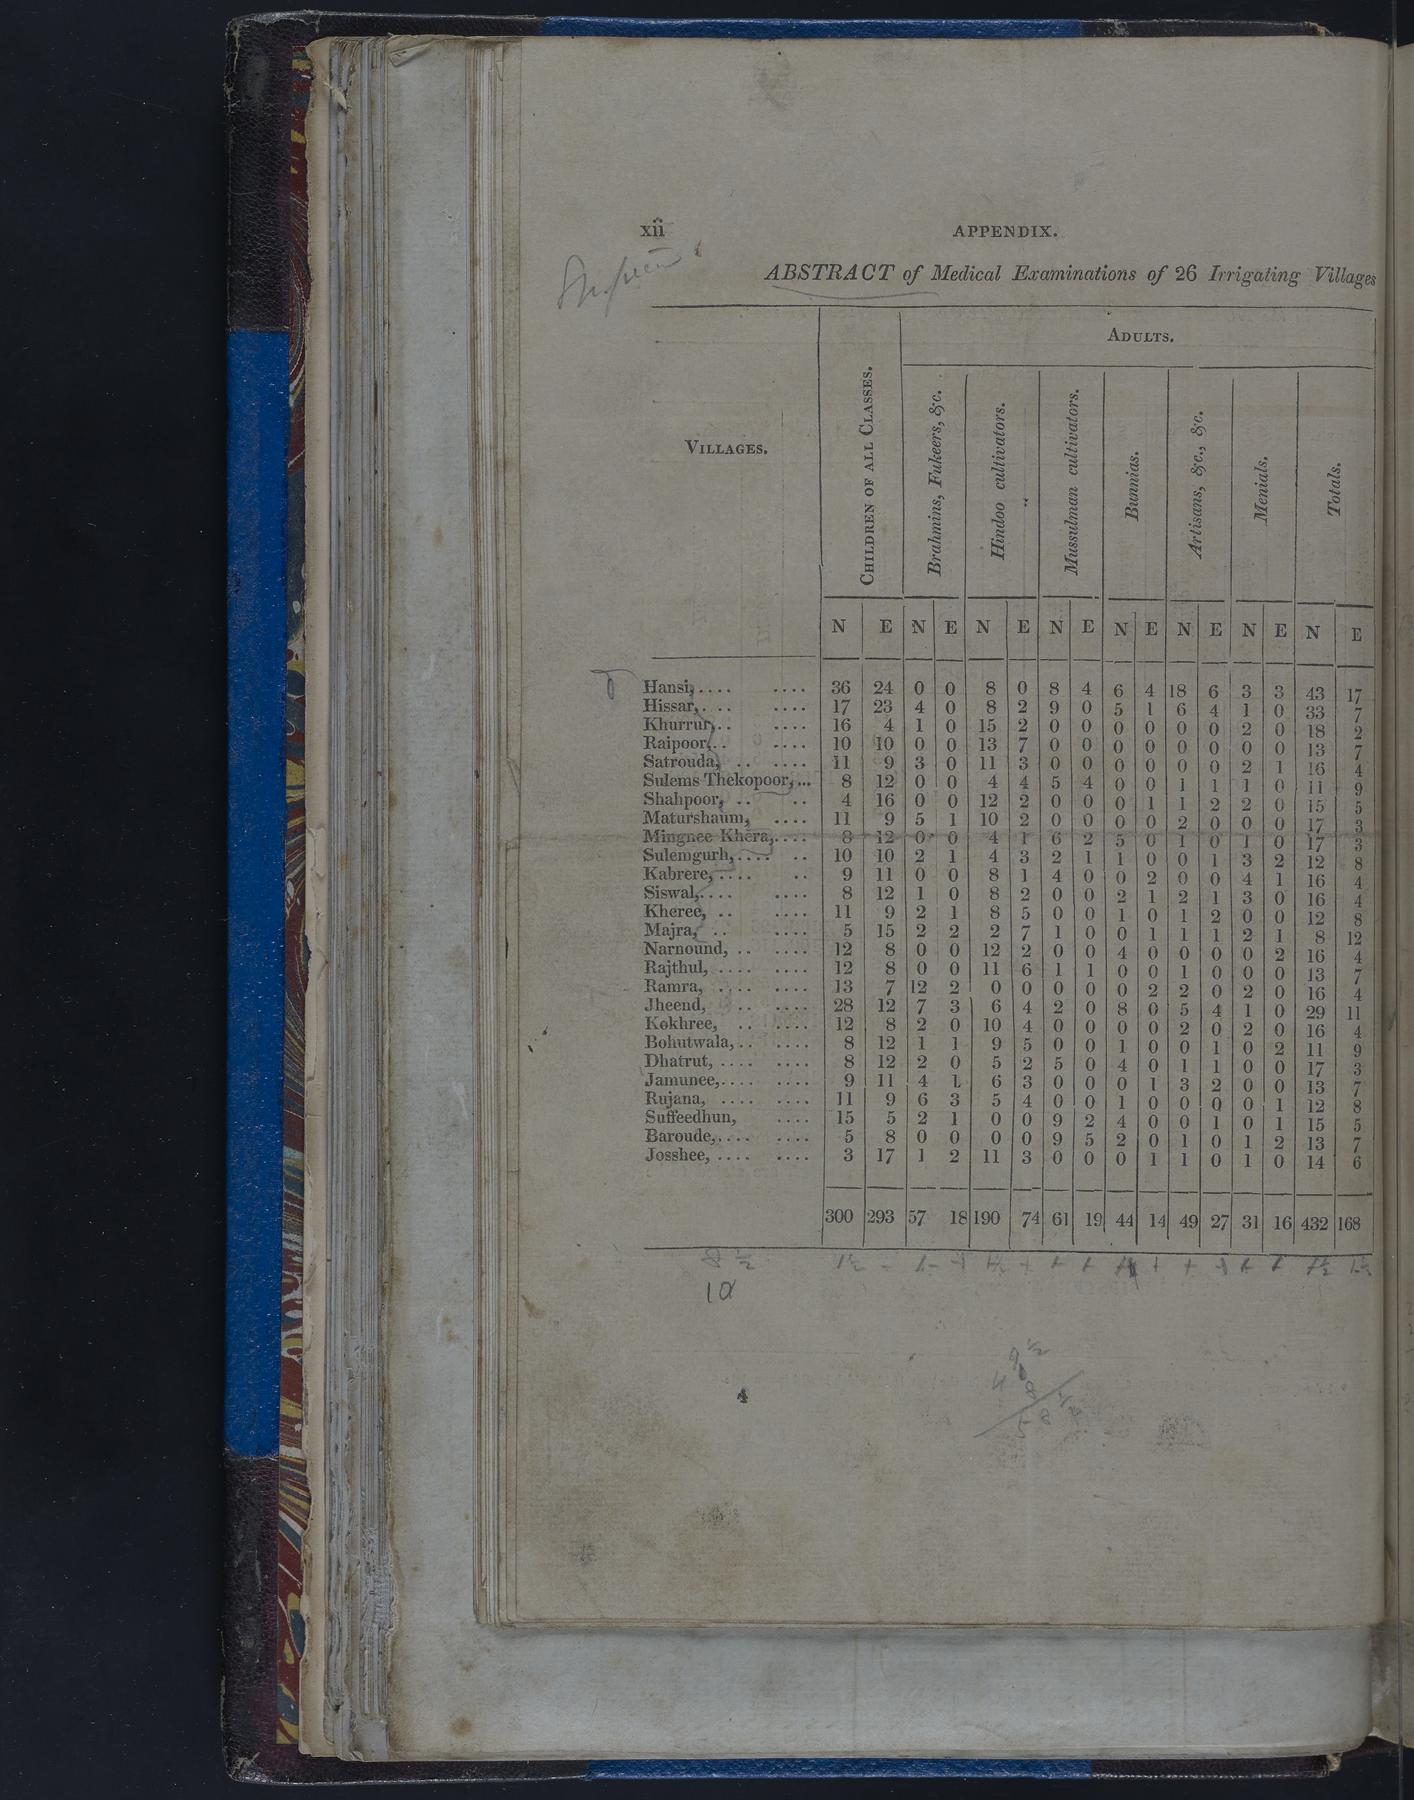 xii
APPENDIX.
ABSTRACT of Medical Examinations of 26 Irrigating Villages
VILLAGES.
CHILDREN OF ALL CLASSES.
ADULTS.
Brahmins, Fukeers, &c.
Hindoo cultivators.
Mussulman cultivators.
Bunnias.
Artisans, &c., &c.
Menials.
Totals.
N E N E N E N E N E N E N E N E
Hansi,.... .... 36 24 0 0 8 0 8 4 6 4 18 6 3 3 43 17
Hissar,.... .... 17 23 4 0 8 2 9 0 5 1 6 4 1 0 33 7
Khurrur,.. .... 16 4 1 0 15 2 0 0 0 0 0 0 2 0 18 2
Raipoor,.. .... 10 10 0 0 13 7 0 0 0 0 0 0 0 0 13 7
Satrouda, .. .... 11 9 3 0 11 3 0 0 0 0 0 0 2 1 16 4
Sulems Thekopoor,... 8 12 0 0 4 4 5 4 0 0 1 1 1 0 11 9
Shahpoor, .. .. 4 16 0 0 12 2 0 0 0 1 1 2 2 0 15 5
Maturshaum, .... 11 9 5 1 10 2 0 0 0 0 2 0 0 0 17 3
Mingnee Khera,.... 8 12 0 0 4 1 6 2 5 0 1 0 1 0 17 3
Sulemgurh,.... .. 10 10 2 1 4 3 2 1 1 0 0 1 3 2 12 8
Kabrere,.... .. 9 11 0 0 8 1 4 0 0 2 0 0 4 1 16 4
Siswal,.... .... 8 12 1 0 8 2 0 0 2 1 2 1 3 0 16 4
Kheree, .. .... 11 9 2 1 8 5 0 0 1 0 1 2 0 0 12 8
Majra, .. .... 5 15 2 2 2 7 1 0 0 1 1 1 2 1 8 12
Narnound, .. .... 12 8 0 0 12 2 0 0 4 0 0 0 0 2 16 4
Rajthul, .... .... 12 8 0 0 11 6 1 1 0 0 1 0 0 0 13 7
Ramra, .... .... 13 7 12 2 0 0 0 0 0 2 2 0 2 0 16 4
Jheend, .. .... 28 12 7 3 6 4 2 0 8 0 5 4 1 0 29 11
Kokhree, .. .... 12 8 2 0 10 4 0 0 0 0 2 0 2 0 16 4
Bohutwala,.. .... 8 12 1 1 9 5 0 0 1 0 0 1 0 2 11 9
Dhatrut, .... .... 8 12 2 0 5 2 5 0 4 0 1 1 0 0 17 3
Jamunee,.... .... 9 11 4 1 6 3 0 0 0 1 3 2 0 0 13 7
Rujana, .... .... 11 9 6 3 5 4 0 0 1 0 0 0 0 1 12 8
Suffeedhun, .... 15 5 2 1 0 0 9 2 4 0 0 1 0 1 15 5
Baroude,.... .... 5 8 0 0 0 0 9 5 2 0 1 0 1 2 13 7
Josshee, .... .... 3 17 1 2 11 3 0 0 0 1 1 0 1 0 14 6
300 293 57 18 190 74 61 19 44 14 49 27 31 16 432 168